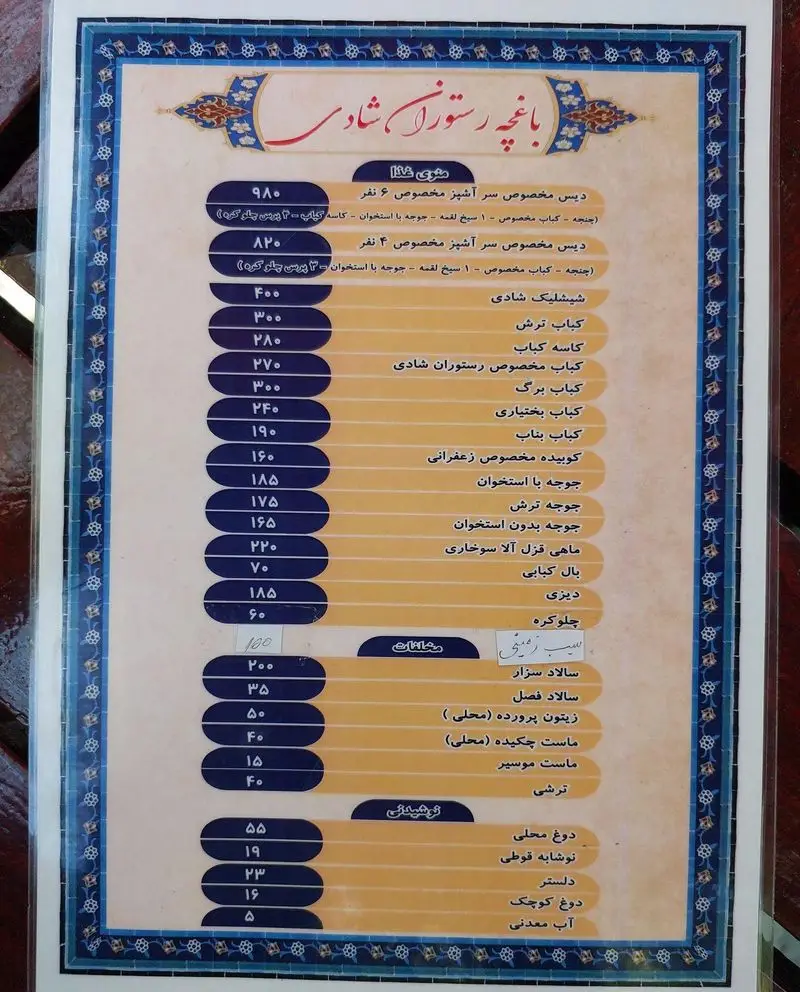 باغچه رستوران شادی
منوی غذا
دیس مخصوص سر آشپز مخصوص ۶ نفر ۹۸۰
(چنجه - کباب مخصوص - ۱ سیخ لقمه - جوجه با استخوان - کاسه کباب - ۴ پرس چلو کره )
دیس مخصوص سر آشپز مخصوص ۴ نفر ۸۲۰
(چنجه - کباب مخصوص - ۱ سیخ لقمه - جوجه با استخوان - ۳ پرس چلو کره )
شیشلیک شادی ۴۰۰
کباب ترش ۳۰۰
کاسه کباب ۲۸۰
کباب مخصوص رستوران شادی ۲۷۰
کباب برگ ۳۰۰
کباب بختیاری ۲۴۰
کباب بناب ۱۹۰
کوبیده مخصوص زعفرانی ۱۶۰
جوجه با استخوان ۱۸۵
جوجه ترش ۱۷۵
جوجه بدون استخوان ۱۶۵
ماهی قزل آلا سوخاری ۲۲۰
بال کبابی ۷۰
دیزی ۱۸۵
چلوکره ۶۰
مخلفات
سیب زمینی ۱۵۰
سالاد سزار ۲۰۰
سالاد فصل ۳۵
زیتون پرورده (محلی ) ۵۰
ماست چکیده (محلی) ۴۰
ماست موسیر ۱۵
ترشی ۴۰
نوشیدنی
دوغ محلی ۵۵
نوشابه قوطی ۱۹
دلستر ۲۳
دوغ کوچک ۱۶
آب معدنی ۵